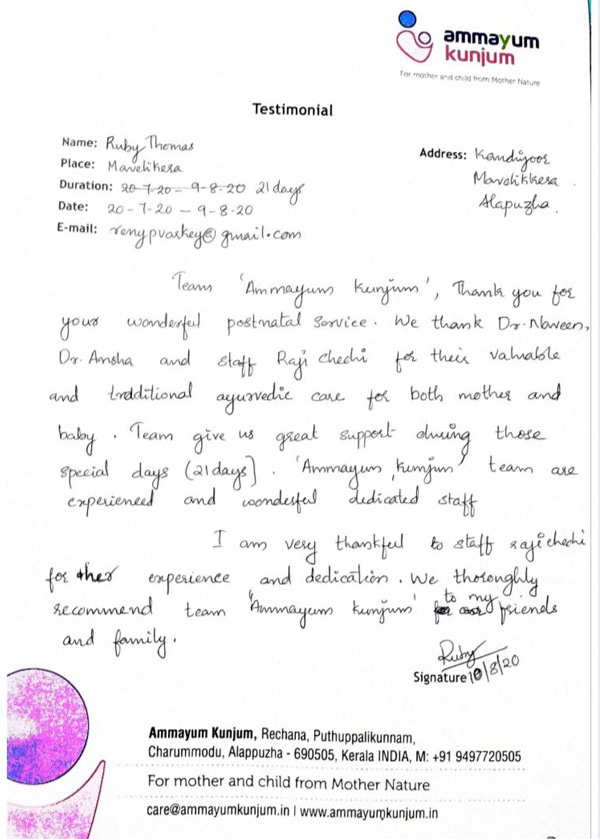 ammayum
kunjum
For mother and child from Mother Nature
Testimonial
Name: Ruby Thomas
Place: Mavelikera
Duration: 20-7-20 - 9-8-20 21 days
Date: 20-7-20 - 9-8-20
E-mail: renypvarkey@gmail.com
Address: Kandiyoor
Mavelikkera
Alapuzha.
Team 'Ammayum Kunjum', Thank you for
your wonderful postnatal service. We thank Dr. Naveen,
Dr. Amsha and staff Raji chechi for their valuable
and traditional ayurvedic care for both mother and
baby. Team give us great support during those
special days (21 days). 'Ammayum kunjum' team are
experienced and wonderful dedicated staff
I am very thankful to staff rajichechi
for her experience and dedication. We thoroughly
recommend team 'Ammayum kunjum' to my friends
and family.
Ruby
Signature 10/8/20
Ammayum Kunjum, Rechana, Puthuppalikunnam,
Charummodu, Alappuzha - 690505, Kerala INDIA, M: +91 9497720505
For mother and child from Mother Nature
care@ammayumkunjum.in | www.ammayumkunjum.in